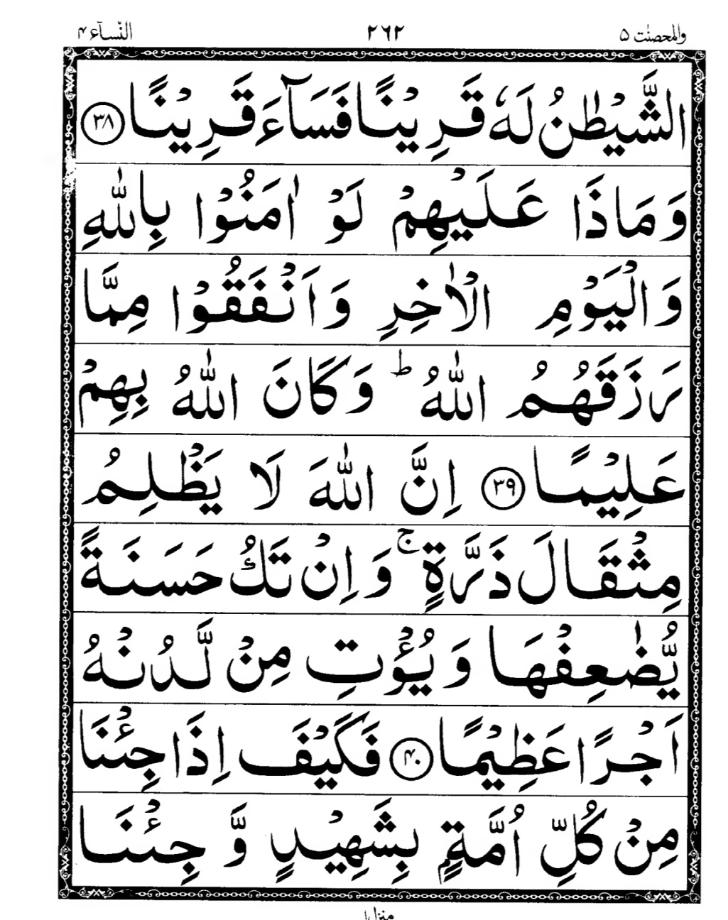 والمحصنٰت ۵ ۲۶۲ النّسآء ۴
الشَّيْطٰنُ لَهٗ قَرِيْنًا فَسَآءَ قَرِيْنًا ۳۸
وَمَاذَا عَلَيْهِمْ لَوْ اٰمَنُوْا بِاللّٰهِ
وَالْيَوْمِ الْاٰخِرِ وَاَنْفَقُوْا مِمَّا
رَزَقَهُمُ اللّٰهُ ؕ وَكَانَ اللّٰهُ بِهِمْ
عَلِيْمًا ۳۹ اِنَّ اللّٰهَ لَا يَظْلِمُ
مِثْقَالَ ذَرَّةٍ ۚ وَاِنْ تَكُ حَسَنَةً
يُّضٰعِفْهَا وَيُؤْتِ مِنْ لَّدُنْهُ
اَجْرًا عَظِيْمًا ۴۰ فَكَيْفَ اِذَا جِئْنَا
مِنْ كُلِّ اُمَّةٍۭ بِشَهِيْدٍ وَّ جِئْنَا
منزل ۱